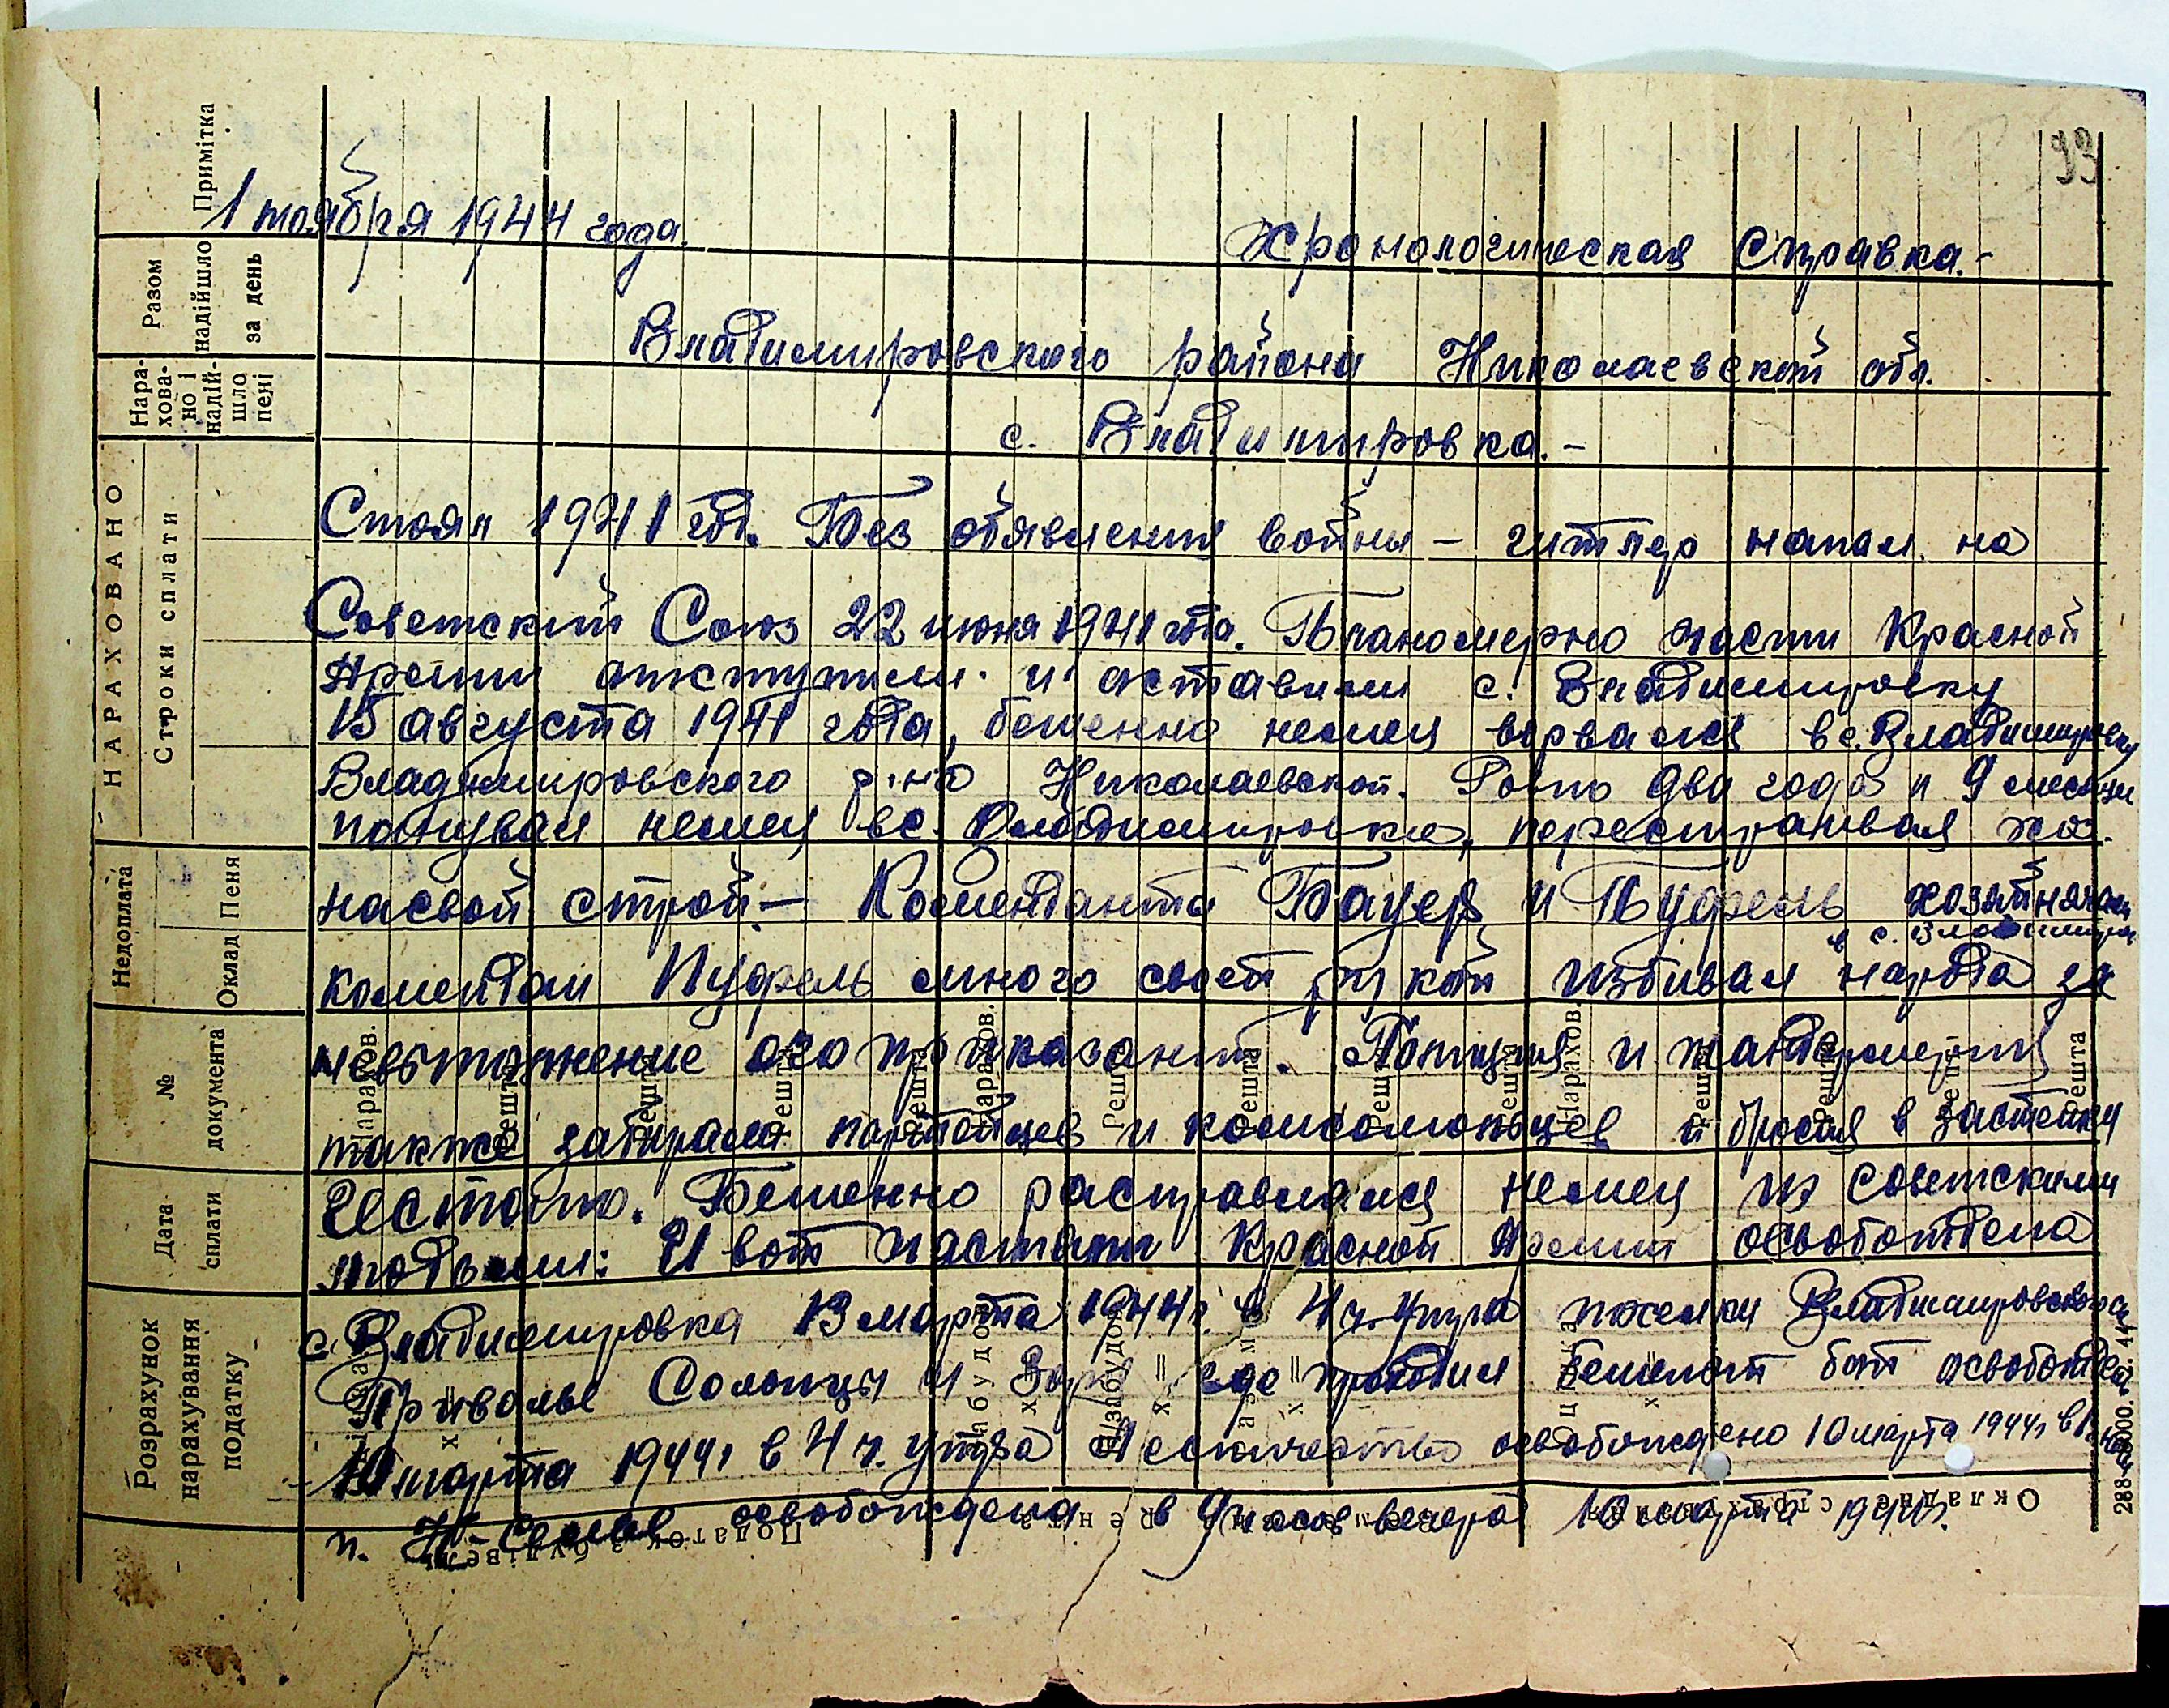 93
1 ноября 1944 года.
Хронологическая Справка.-
Владимировского района Николаевской обл.
с. Владимировка.-
Стоял 1941 год. Без обявления войны – гитлер напал на
Советский Союз 22 июня 1941 года. Планомерно части Красной
Армии отступили и оставили с. Владимировку
15 августа 1941 года, бешенно немец ворвался в с. Владимировку
Владимировского р-на Николаевской. Ровно два года и 9 месяцы
панувал немец в с. Владимировке, перестраивая
на свой строй.– Коменданты Бауер и Пуфель хозяйничали
в с. Владимировке
комендант Пуфель много своей рукой избивал народа за
невыполнение его приказаний. Полиция и жандермерия
также забирала партейцев и комсомольцев и бросая в застенки
Гестапо. Бешенно расправлялся немец из советскими
людьми: И вот частями Красной Армии освобождена
с. Владимировка 13 марта 1944г. в 4 ч. утра поселки Владимировского
Приволье Солонцы и где проходил бой освобожден
10 марта 1944г в 4 ч. утра Лесничество освобождено 10 марта 1944г в
п. освобождена в 9 часов вечера 10 марта 1944г.
Примітка
Разом надійшло за день
Нара-
хова-
но і
надій-
шло
пені
НАРАХОВАНО
Строки сплати
Недоплата
Оклад Пеня
№ документа
Дата сплати
Розрахунок нарахування податку
Нарахов.
Решта
Решта
Решта
Решта
Нарахов.
Решта
Решта
Решта
Решта
Нарахов.
Решта
Решта
Решта
Податок з будівель